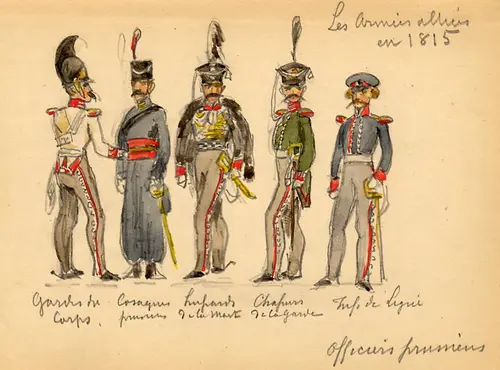 Les Armées alliées
en 1815
Gardes du
Corps.
Cosaques
prussiens
Hussards
de la Mort
Chasseurs
de la Garde
Infie de Ligne
Officiers prussiens